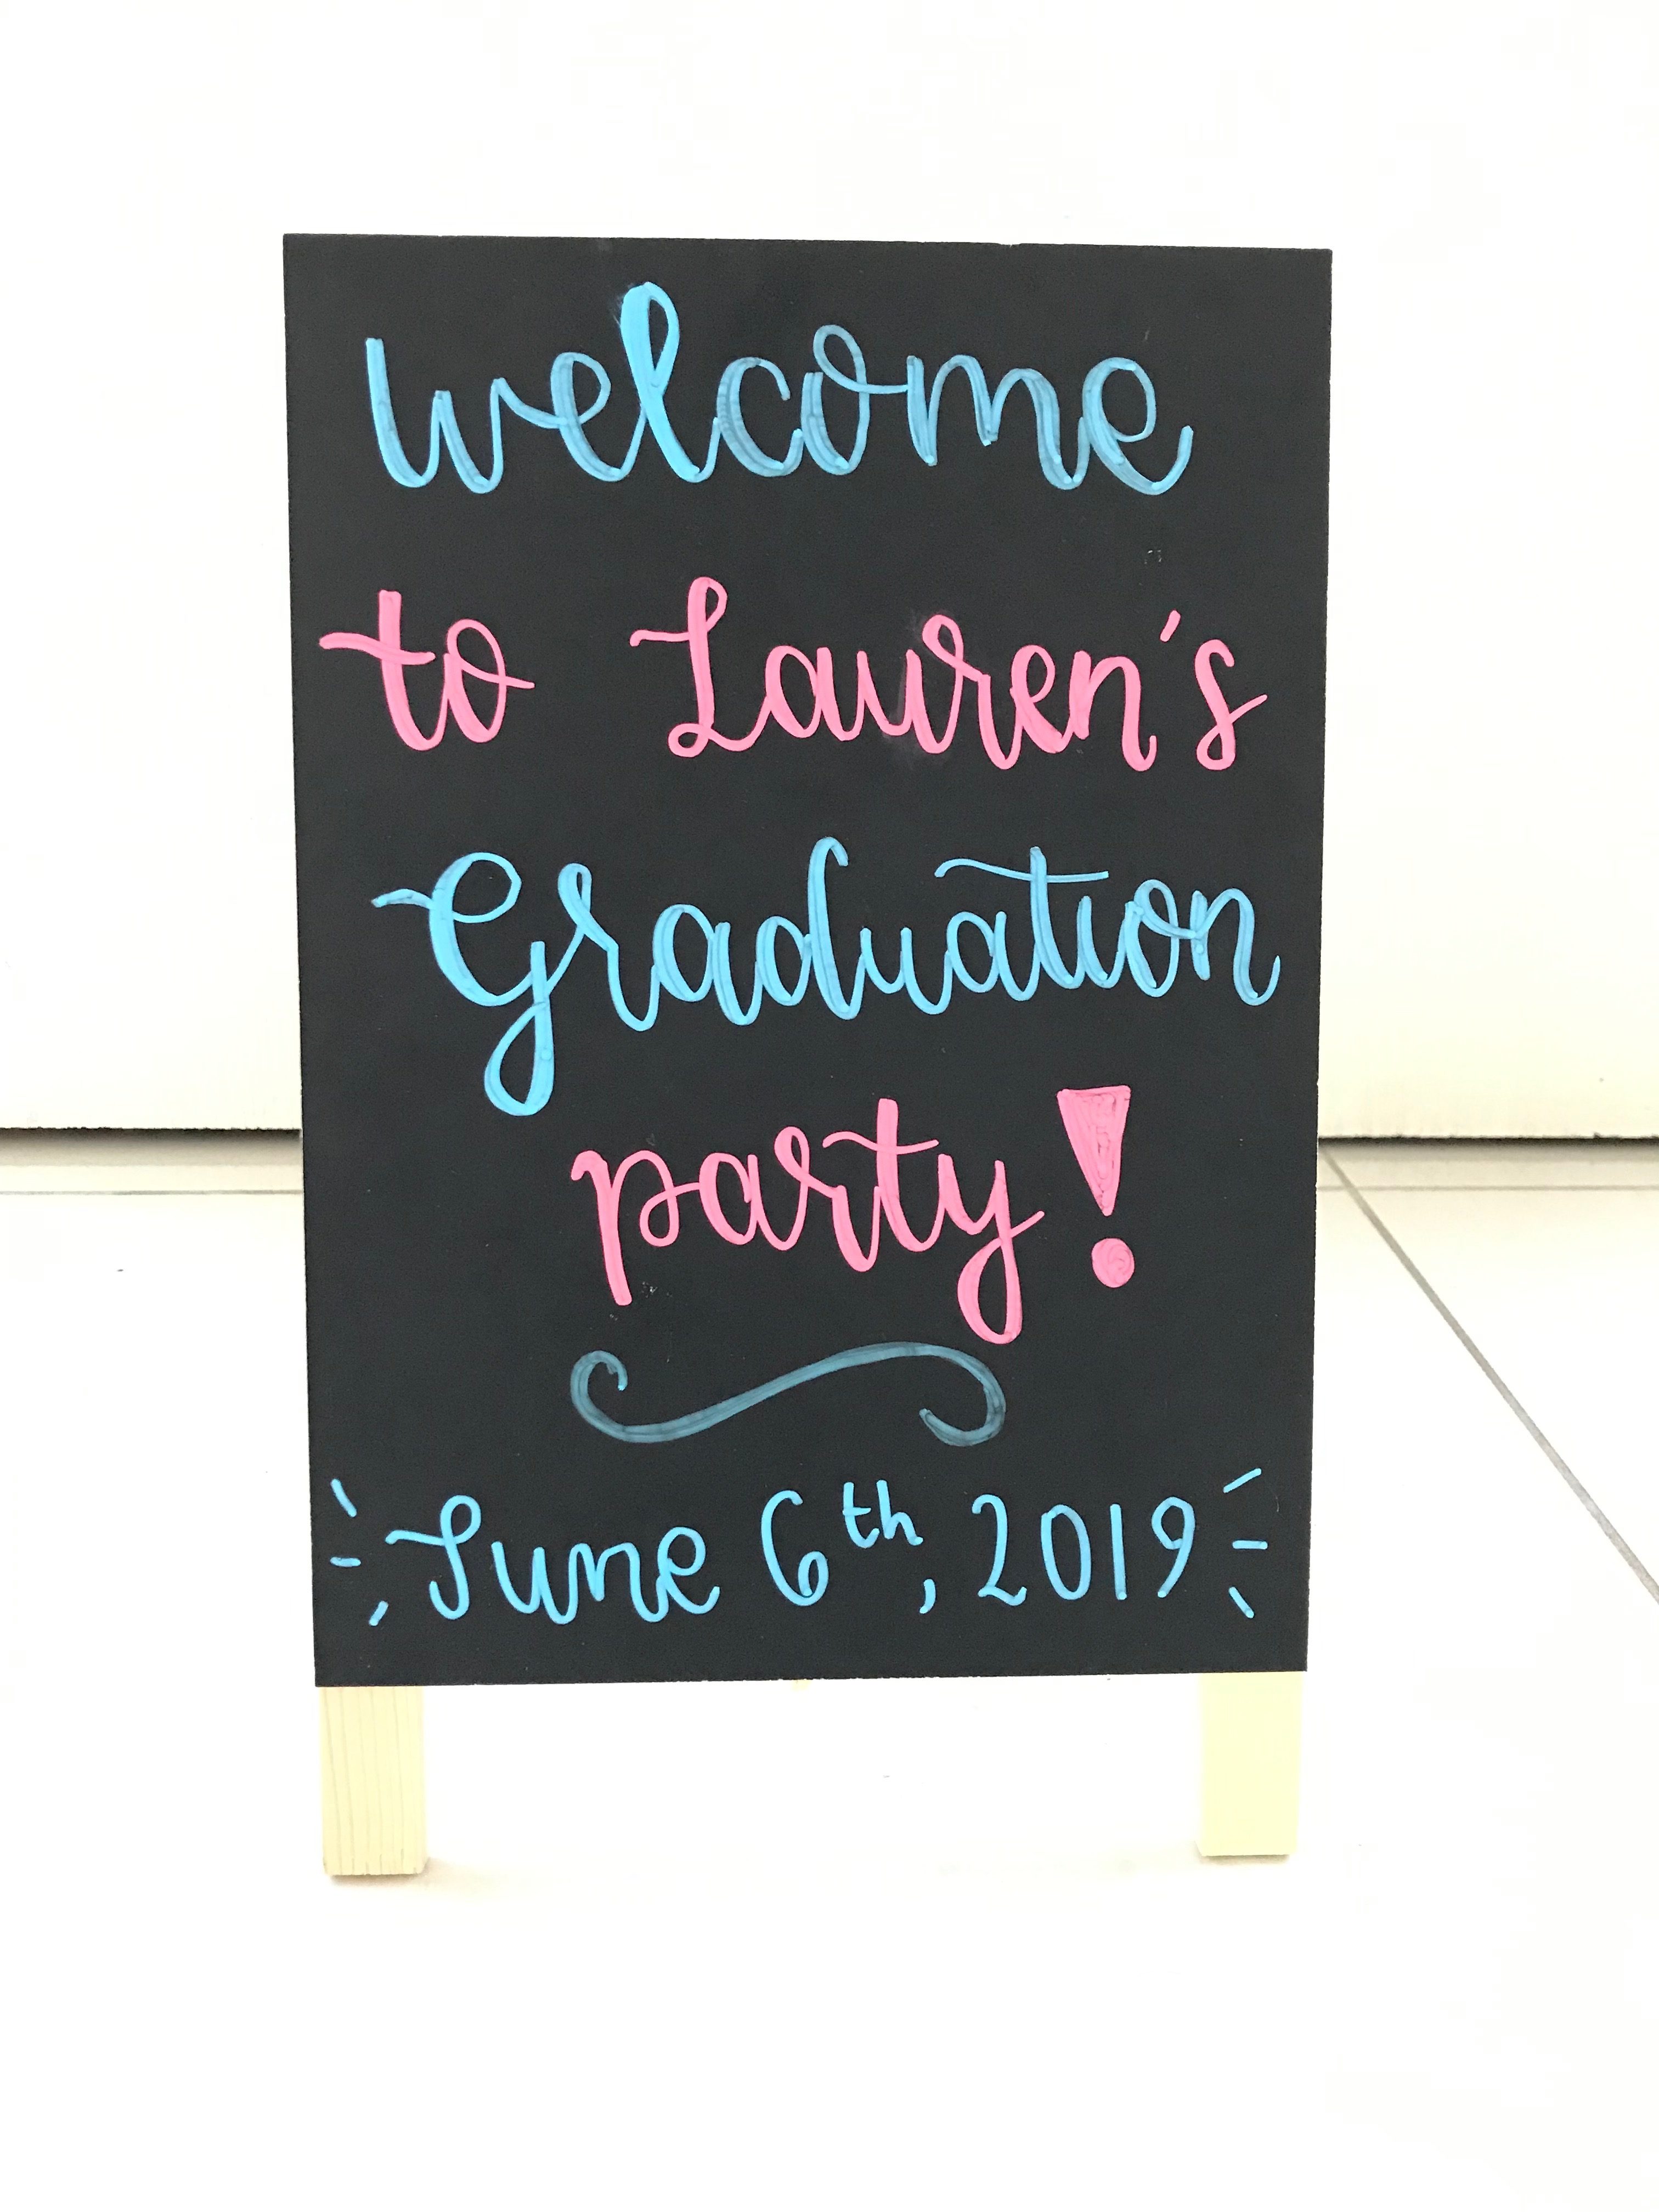 welcome
to Lauren's
Graduation
party!
June 6th, 2019